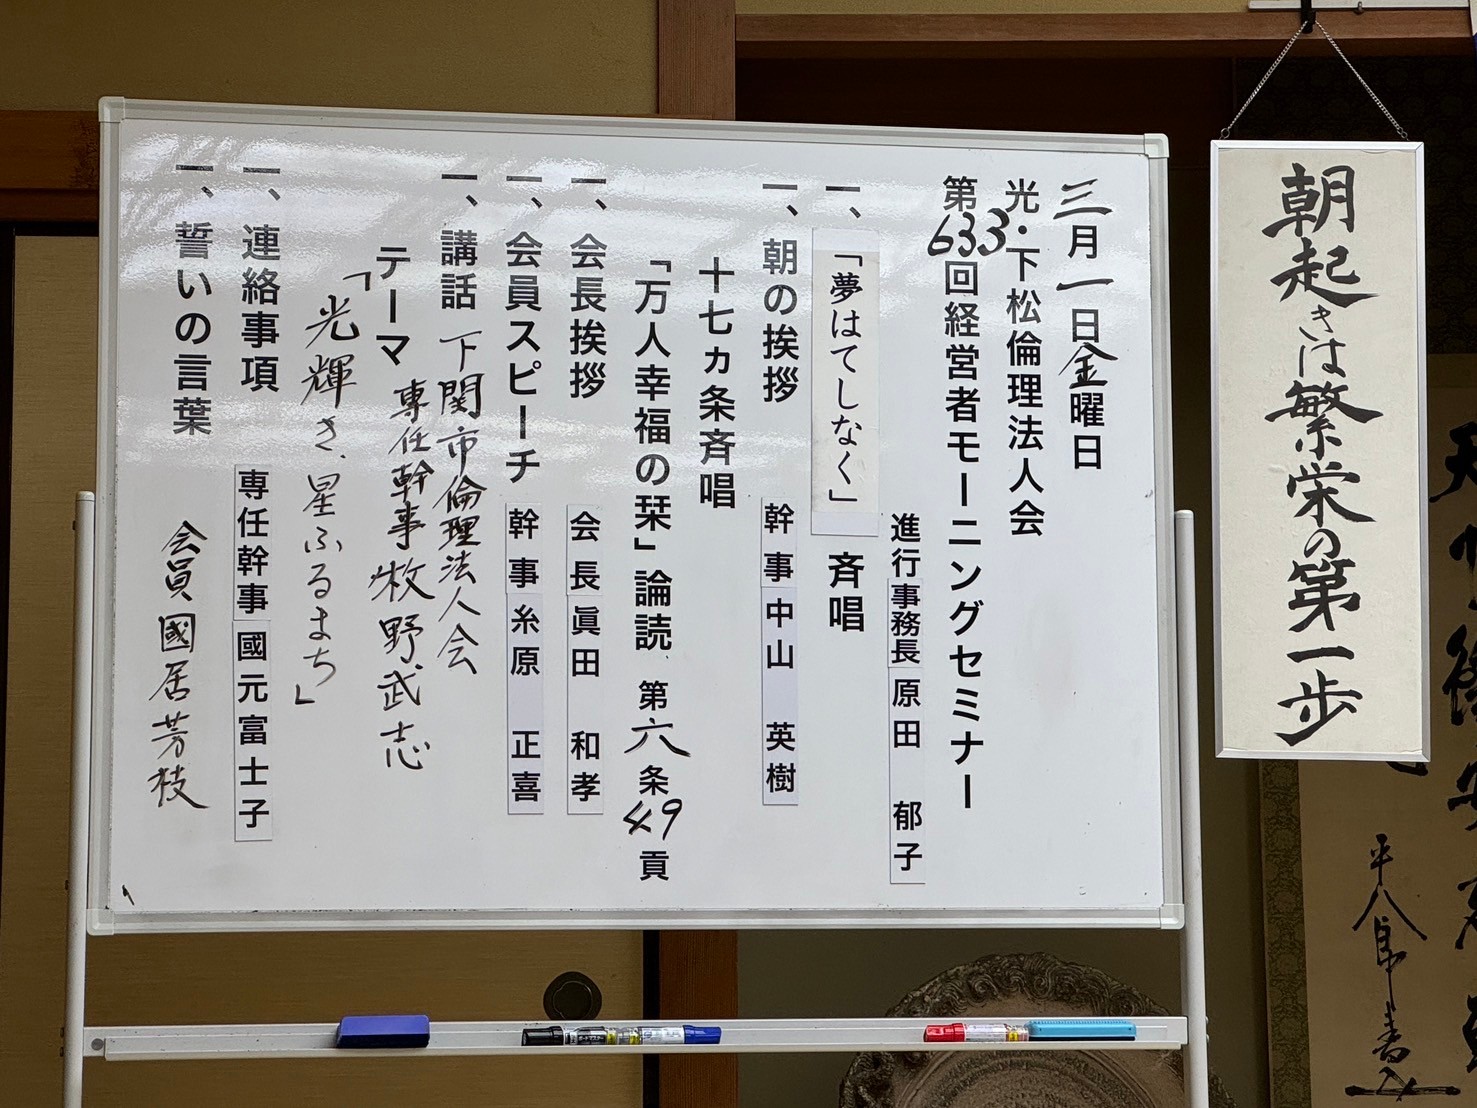 朝起きは繁栄の第一歩
三月一日金曜日
光・下松倫理法人会
第633回経営者モーニングセミナー
進行 事務長 原田 郁子
一、「夢はてしなく」 斉唱
一、朝の挨拶 幹事 中山 英樹
十七ヵ条斉唱
「万人幸福の栞」論読 第六条 49貢
一、会長挨拶 会長 眞田 和孝
一、会員スピーチ 幹事 糸原 正喜
一、講話 下関市倫理法人会
専任幹事 牧野武志
テーマ
「光輝き、星ふるまち」
一、連絡事項 専任幹事 國元富士子
一、誓いの言葉 会員 國居芳枝
平八郎書